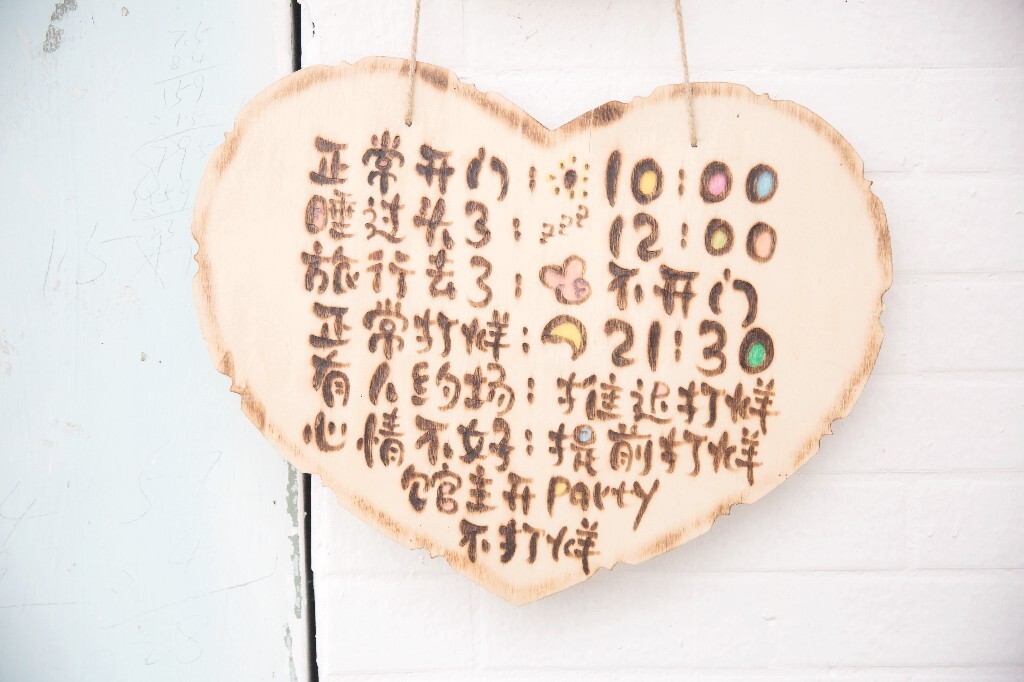 正常开门: 10:00
睡过头了: zzz 12:00
旅行去了: 不开门
正常打烊: 21:30
有人约场: 推迟打烊
心情不好: 提前打烊
馆主开party
不打烊